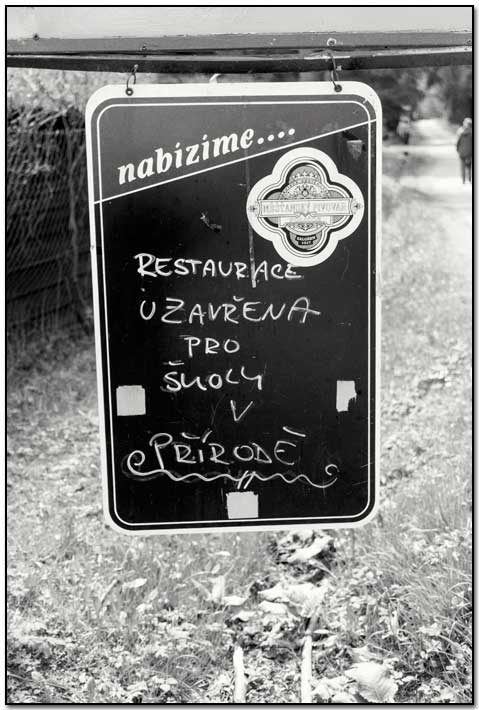 nabízíme....
MĚŠŤANSKÝ PIVOVAR
RESTAURACE
UZAVŘENA
PRO
ŠKOLY
V
PŘÍRODĚ